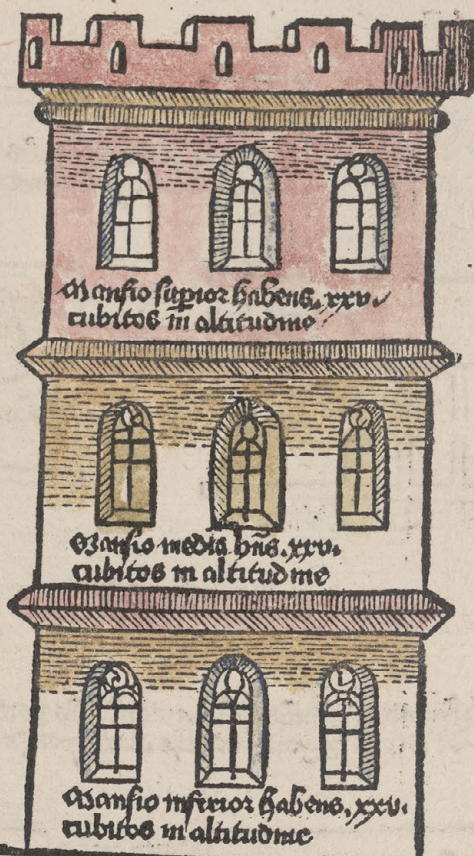 Mansio suꝑior habens .xxv.
cubitos in altitudine
Mansio media hñs .xxv.
cubitos in altitudine
Mansio inferior habens .xxv.
cubitos in altitudine